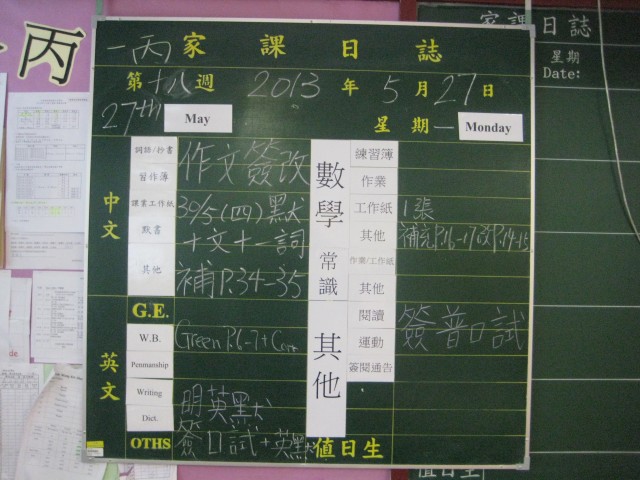 丙
一丙 家課日誌
第十八週 2013年5月27日
27th May 星期一 Monday
中文
詞語/抄書
習作簿
作文簽改
課業工作紙
默書
30/5(四)默
十文十一詞
其他
補P.34-35
英文
G.E.
W.B.
Green P.6-7+Corr
Penmanship
Writing
Dict.
明英默
OTHS
簽口試+英默
數學
練習簿
作業
工作紙 1張
其他 補充P.16-17改P.14-15
常識
作業/工作紙
其他
其他
閱讀 簽普口試
運動
簽閱通告
值日生
家課日誌
星期
Date:
值日生